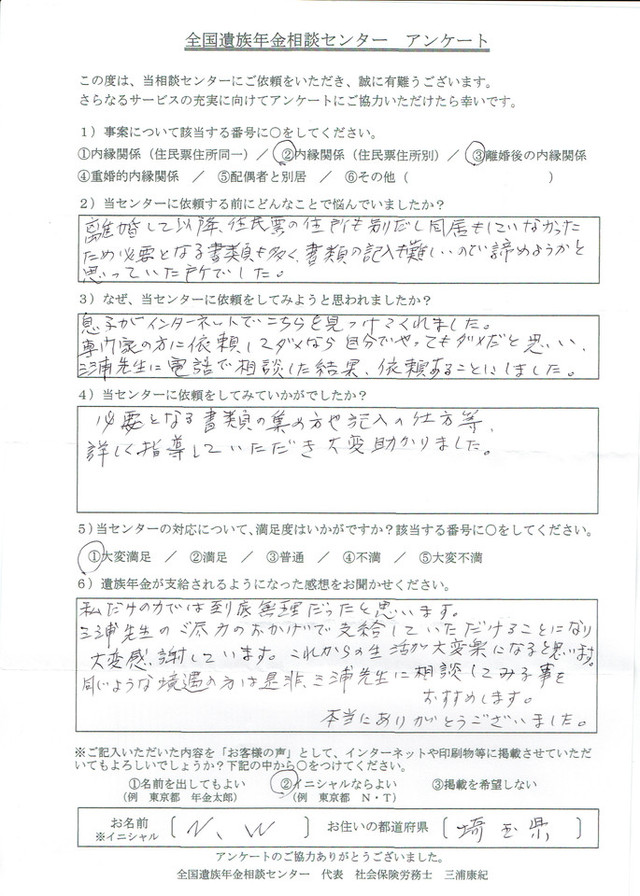 全国遺族年金相談センター　アンケート
この度は、当相談センターにご依頼をいただき、誠に有難うございます。
さらなるサービスの充実に向けてアンケートにご協力いただけたら幸いです。
1）事案について該当する番号に○をしてください。
①内縁関係（住民票住所同一）／ ②内縁関係（住民票住所別）／ ③離婚後の内縁関係
④重婚的内縁関係　／　⑤配偶者と別居　／　⑥その他（　　　　　　　　　　）
2）当センターに依頼する前にどんなことで悩んでいましたか？
離婚して以降、住民票の住所も別だし同居もしていなかった
ため必要となる書類も多く、書類の記入も難しいので諦めようかと
思っていた所でした。
3）なぜ、当センターに依頼をしてみようと思われましたか？
息子がインターネットでこちらを見つけてくれました。
専門家の方に依頼してダメなら自分でやってもダメだと思い、
三浦先生に電話で相談した結果、依頼することにしました。
4）当センターに依頼をしてみていかがでしたか？
必要となる書類の集め方や記入の仕方等、
詳しく指導していただき大変助かりました。
5）当センターの対応について、満足度はいかがですか？該当する番号に○をしてください。
①大変満足　／　②満足　／　③普通　／　④不満　／　⑤大変不満
6）遺族年金が支給されるようになった感想をお聞かせください。
私だけの力では到底無理だったと思います。
三浦先生のご尽力のおかげで支給していただけることになり
大変感謝しています。これからの生活が大変楽になると思います。
同じような境遇の方は是非、三浦先生に相談してみる事を
おすすめします。
本当にありがとうございました。
※ご記入いただいた内容を「お客様の声」として、インターネットや印刷物等に掲載させていただ
いてもよろしいでしょうか？下記の中から○をつけてください。
①名前を出してもよい　②イニシャルならよい　③掲載を希望しない
（例　東京都　年金太郎）　（例　東京都　N・T）
お名前
※イニシャル　〔 N、W 〕　お住いの都道府県　〔 埼玉県 〕
アンケートのご協力ありがとうございました。
全国遺族年金相談センター　代表　社会保険労務士　三浦康紀